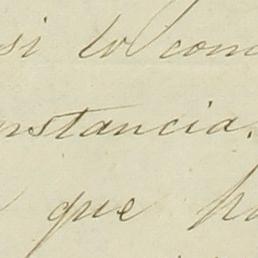 si lo com
nstancia.
que ha